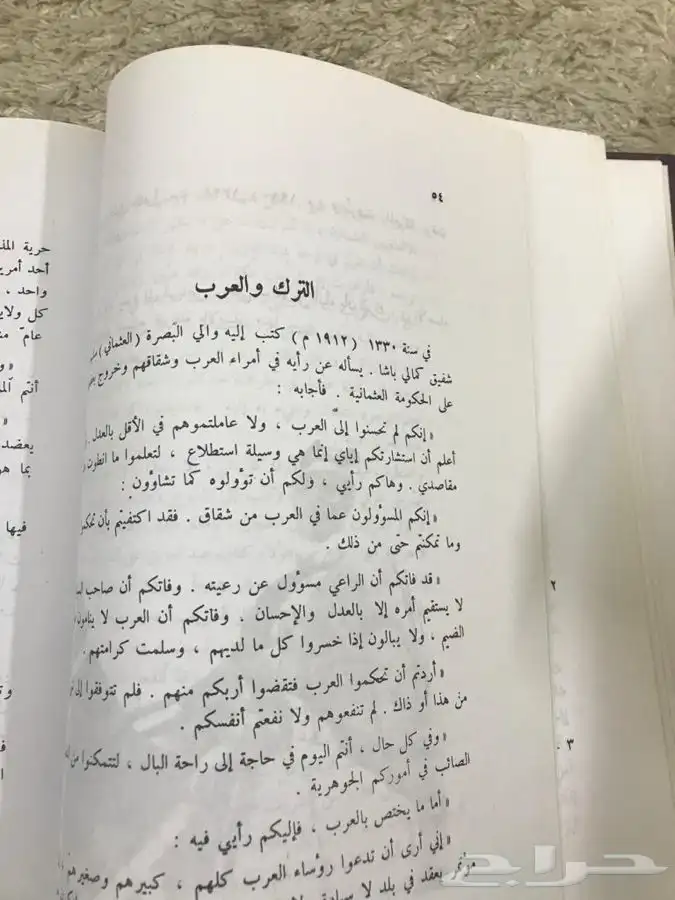 ٥٤
الترك والعرب
في سنة ١٣٣٠ (١٩١٢ م) كتب إليه والي البصرة (العثماني)
شفيق كمالي باشا . يسأله عن رأيه في أمراء العرب وشقاقهم وخروج
على الحكومة العثمانية . فأجابه :
« إنكم لم تحسنوا إلى العرب ، ولا عاملتموهم في الأقل بالعدل .
أعلم أن استشارتكم إياي إنما هي وسيلة استطلاع ، لتعلموا ما انطوت
مقاصدي . وهاكم رأيي ، ولكم أن تؤولوه كما تشاؤون :
« إنكم المسؤولون عما في العرب من شقاق . فقد اكتفيتم بأن تحكموا
وما تمكنتم حتى من ذلك .
« قد فاتكم أن الراعي مسؤول عن رعيته . وفاتكم أن صاحب
لا يستقيم أمره إلا بالعدل والإحسان . وفاتكم أن العرب لا ينامون
الضيم ، ولا يبالون إذا خسروا كل ما لديهم ، وسلمت كرامتهم .
« أردتم أن تحكموا العرب فتقضوا أربكم منهم . فلم تتوفقوا إلى
من هذا أو ذاك . لم تنفعوهم ولا نفعتم أنفسكم .
« وفي كل حال ، أنتم اليوم في حاجة إلى راحة البال ، لتتمكنوا من
الصائب في أموركم الجوهرية .
« أما ما يختص بالعرب ، فإليكم رأيي فيه :
« إني أرى أن تدعوا رؤساء العرب كلهم ، كبيرهم وصغيرهم
مؤتمر يعقد في بلد لا
حرية
أحد
واحد ،
كل
عام
أنتم
يعضد
بما
فيها
٢
٣
حراج